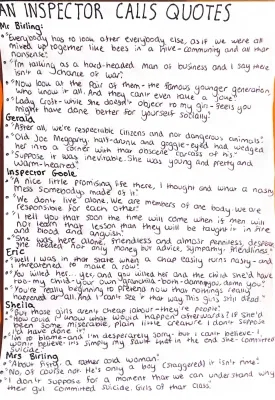 AN INSPECTOR CALLS QUOTES
Mr Birling:
"Everybody has to look after everybody else, as if we were all
mixed up together like bees in a hive - community and all that
nonsense."
"I'm talking as a hard-headed man of business and I say there
isn't a chance of war."
"Now look at the pair of them - the famous younger generation
who know it all. And they can't even take a joke"
"Lady Croft - while she doesn't object to my girl - feels you
might have done better for yourself socially"
Gerald
"After all, we're respectable citizens and not dangerous animals."
"Old Joe Meggarty, half-drunk and goggle-eyed had wedged
her into a corner with that obscene carcass of his"
"Suppose it was inevitable. She was young and pretty and
warm-hearted."
Inspector Goole
"A nice little promising life there, I thought and what a nasty
mess somebody made of it."
"We don't live alone. We are members of one body we are
responsible for each other."
"I tell you that soon the time will come when if men will
not learn that lesson than they will be taught it in fire
and blood and anguish"
"She was here alone, friendless and almost penniless, desperate
she needed not only money but advice, sympathy, friendliness"
Eric
"Well I was in that state when a chap easily turns nasty - and
threatened to make a row."
"You killed her - yes, and you killed and the child she'd have
too - my child - your own grandchild - both - damn you, damn you."
"You're really beginning to pretend now that nothing's really
happened at all. And I can't see it that way. This girl's still dead."
Sheila
"But these girls aren't cheap labour - they're people."
"How could I know what would happen afterwards? If she'd
been some miserable, plain little creature I don't suppose
I'd have done it"
"I'm to blame - and I'm desperately sorry - but I can't believe - I
won't believe - it's simply my fault that in the end she - committed
suicide"
Mrs Birling
"About fifty, a rather cold woman."
"No, of course not. He's only a boy (staggered) it isn't time"
"I don't suppose for a moment that we can understand why
the girl committed suicide. Girls of that class"